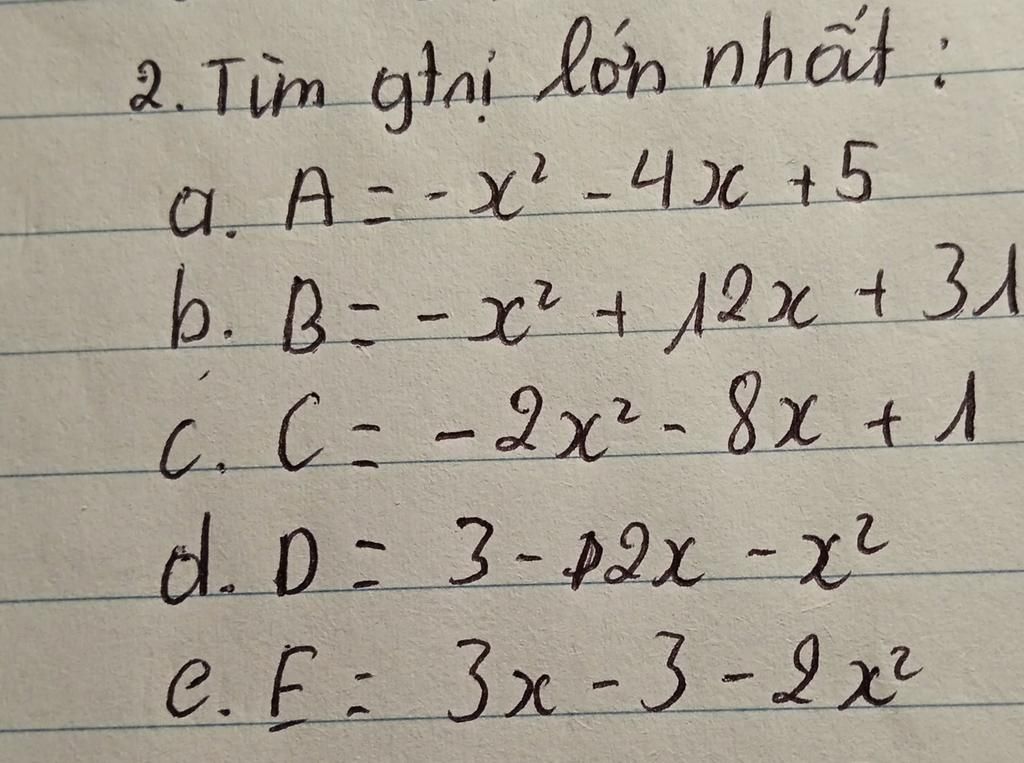 2. Tìm gtrị lớn nhất :
a. A = -x² - 4x + 5
b. B = - x² + 12x + 31
c. C = - 2x² - 8x + 1
d. D = 3 - 12x - x²
e. E = 3x - 3 - 2x²